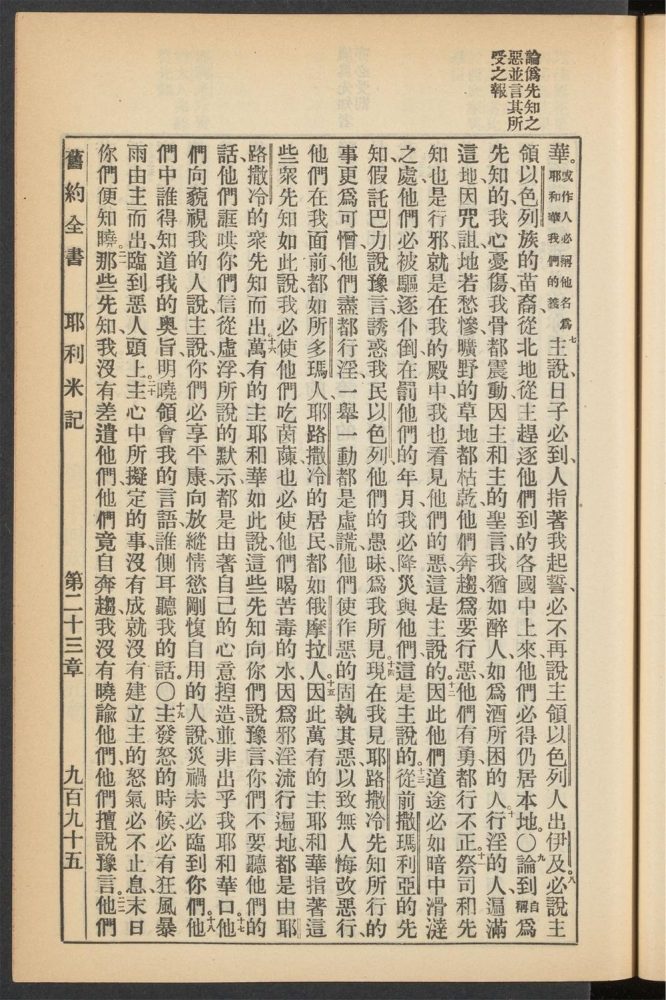 論僞先知之
惡並言其所
受之報
華。或作人必稱他名爲耶和華我們的義七主說、日子必到、人指著我起誓、必不再說主領以色列人出伊及、八必說主
領以色列族的苗裔從北地、從主趕逐他們到的各國中上來、他們必得仍居本地。〇九論到自稱爲
先知的、我心憂傷、我骨都震動、因主和主的聖言、我猶如醉人、如爲酒所困的人。十行淫的人、遍滿
這地、因咒詛地若愁慘、曠野的草地都枯乾、他們奔趨爲要行惡、他們有勇都行不正。十一祭司和先
知也是行邪、就是在我的殿中、我也看見他們的惡、這是主說的。十二因此他們道途必如暗中滑澾
之處、他們必被驅逐仆倒在罰他們的年月、我必降災與他們、這是主說的。十三從前撒瑪利亞的先
知、假託巴力說豫言、誘惑我民以色列、他們的愚昧爲我所見、十四現在我見耶路撒冷先知所行的
事更爲可憎、他們盡都行淫、一舉一動都是虛謊、他們使作惡的固執其惡、以致無人悔改惡行、
他們在我面前都如所多瑪人、耶路撒冷的居民、都如俄摩拉人。十五因此萬有的主耶和華指著這
些衆先知如此說、我必使他們吃茵蔯、也必使他們喝苦毒的水、因爲邪淫流行遍地、都是由耶
路撒冷的衆先知而出。十六萬有的主耶和華如此說、這些先知向你們說豫言、你們不要聽他們的
話、他們誆哄你們信從虛浮、所說的默示都是由著自己的心意揑造、並非出乎我耶和華口。十七他
們向藐視我的人說、主說、你們必享平康、向放縱情慾剛愎自用的人說、災禍未必臨到你們。十八他
們中誰得知道我的奧旨、明曉領會我的言語、誰側耳聽我的話。〇十九主發怒的時候、必有狂風暴
雨由主而出、臨到惡人頭上。二十主心中所擬定的事、沒有成就沒有建立、主的怒氣必不止息、末日
你們便知曉。二一那些先知我沒有差遣他們、他們竟自奔趨、我沒有曉諭他們、他們擅說豫言。二二他們
舊約全書　耶利米記　第二十三章　九百九十五